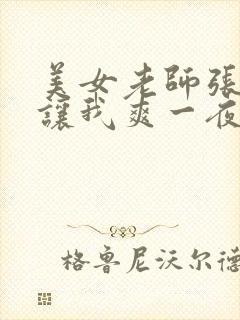 美女老師張
讓我爽一夜
格鲁尼沃尔德